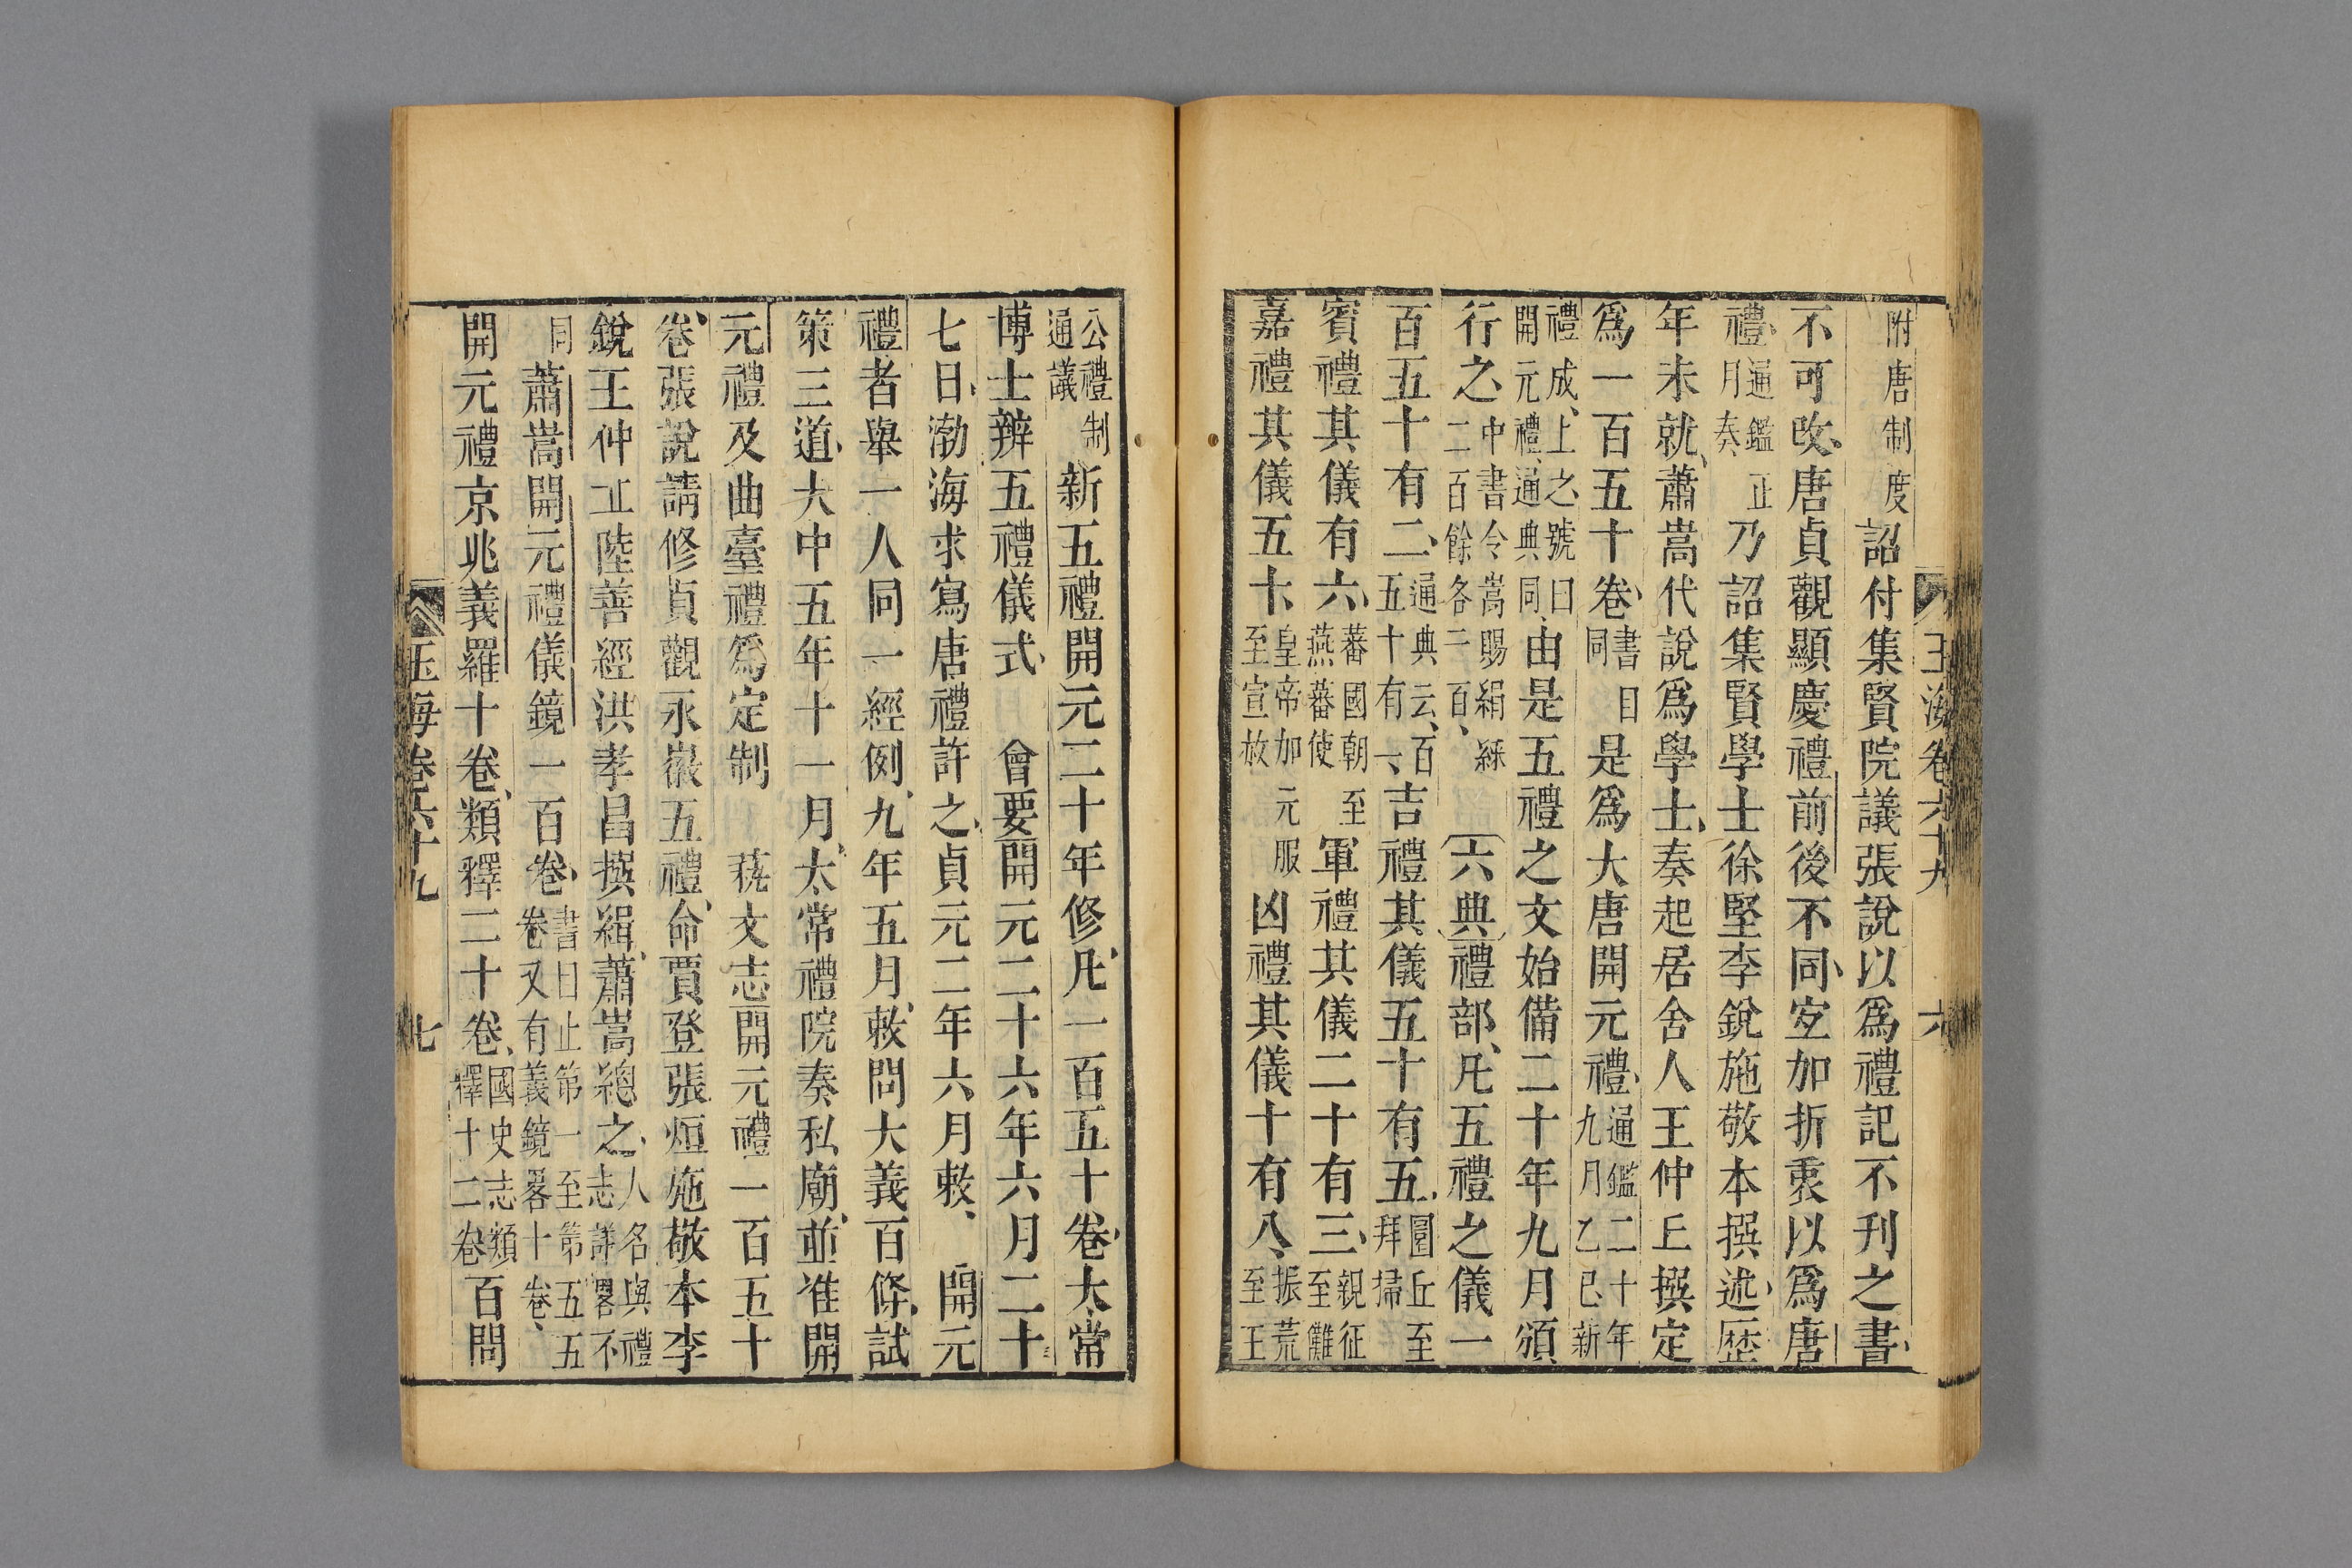 玉海卷六十九 六
附唐制度詔付集賢院議張說以爲禮記不刊之書
不可改唐貞觀顯慶禮前後不同宐加折衷以爲唐
禮通鑑正月奏乃詔集賢學士徐堅李銳施敬本撰述歷
年未就蕭嵩代說爲學士奏起居舍人王仲丘撰定
爲一百五十卷書目同是爲大唐開元禮通鑑二十年九月乙巳新
禮成上之號曰開元禮通典同由是五禮之文始備二十年九月頒
行之中書令嵩賜絹綵二百餘各二百六典禮部凡五禮之儀一
百五十有二通典云百五十有一吉禮其儀五十有五圜丘至拜掃
賓禮其儀有六蕃國朝至燕蕃使軍禮其儀二十有三親征至儺
嘉禮其儀五十皇帝加元服至宣赦凶禮其儀十有八振荒至王
公禮制通議新五禮開元二十年修凡一百五十卷太常
博士辨五禮儀式 會要開元二十六年六月二十
七日渤海求寫唐禮許之貞元二年六月敕開元
禮者舉一人同一經例九年五月敕問大義百條試
策三道大中五年十一月太常禮院奏私廟並准開
元禮及曲臺禮爲定制 藝文志開元禮一百五十
卷張說請修貞觀永徽五禮命賈登張烜施敬本李
銳王仲丘陸善經洪孝昌撰緝蕭嵩總之人名與禮志詳畧不
同蕭嵩開元禮儀鏡一百卷書目止第一至第五五卷又有義鏡畧十卷
開元禮京兆義羅十卷類釋二十卷國史志類釋十二卷百問
玉海卷六十九 七